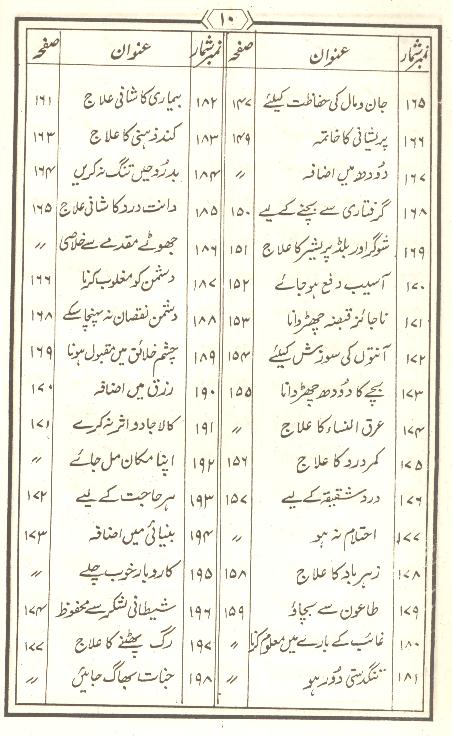 ۱۰
نمبر شمار عنوان صفحہ
۱۶۵ جان و مال کی حفاظت کیلئے ۱۴۷
۱۶۶ پریشانی کا خاتمہ ۱۴۹
۱۶۷ دودھ میں اضافہ 〃
۱۶۸ گرفتاری سے بچنے کے لیے ۱۵۰
۱۶۹ شوگر اور بلڈ پریشر کا علاج ۱۵۱
۱۷۰ آسیب دفع ہو جائے ۱۵۲
۱۷۱ ناجائز قبضہ چھڑوانا ۱۵۳
۱۷۲ آنتوں کی سوزش کیلئے ۱۵۴
۱۷۳ بچے کا دودھ چھڑوانا ۱۵۵
۱۷۴ عرق النساء کا علاج 〃
۱۷۵ کمر درد کا علاج ۱۵۶
۱۷۶ درد شقیقہ کے لیے ۱۵۷
۱۷۷ احتلام نہ ہو 〃
۱۷۸ زہر باد کا علاج ۱۵۸
۱۷۹ طاعون سے بچاؤ ۱۵۹
۱۸۰ غائب کے بارے میں معلوم کرنا 〃
۱۸۱ تنگدستی دور ہو 〃
نمبر شمار عنوان صفحہ
۱۸۲ بیماری کا شافی علاج ۱۶۱
۱۸۳ کند ذہنی کا علاج ۱۶۳
۱۸۴ بدروحیں تنگ نہ کریں ۱۶۴
۱۸۵ دانت درد کا شافی علاج ۱۶۵
۱۸۶ جھوٹے مقدمے سے خلاصی 〃
۱۸۷ دشمن کو مغلوب کرنا ۱۶۶
۱۸۸ دشمن نقصان نہ پہنچا سکے ۱۶۸
۱۸۹ چشم خلائق میں مقبول ہونا ۱۶۹
۱۹۰ رزق میں اضافہ ۱۷۰
۱۹۱ کالا جادو اثر نہ کرے ۱۷۱
۱۹۲ اپنا مکان مل جائے 〃
۱۹۳ ہر حاجت کے لیے ۱۷۲
۱۹۴ بینائی میں اضافہ ۱۷۳
۱۹۵ کاروبار خوب چلے 〃
۱۹۶ شیطانی لشکر سے محفوظ ۱۷۴
۱۹۷ رگ پھٹنے کا علاج ۱۷۷
۱۹۸ جنات بھاگ جائیں 〃